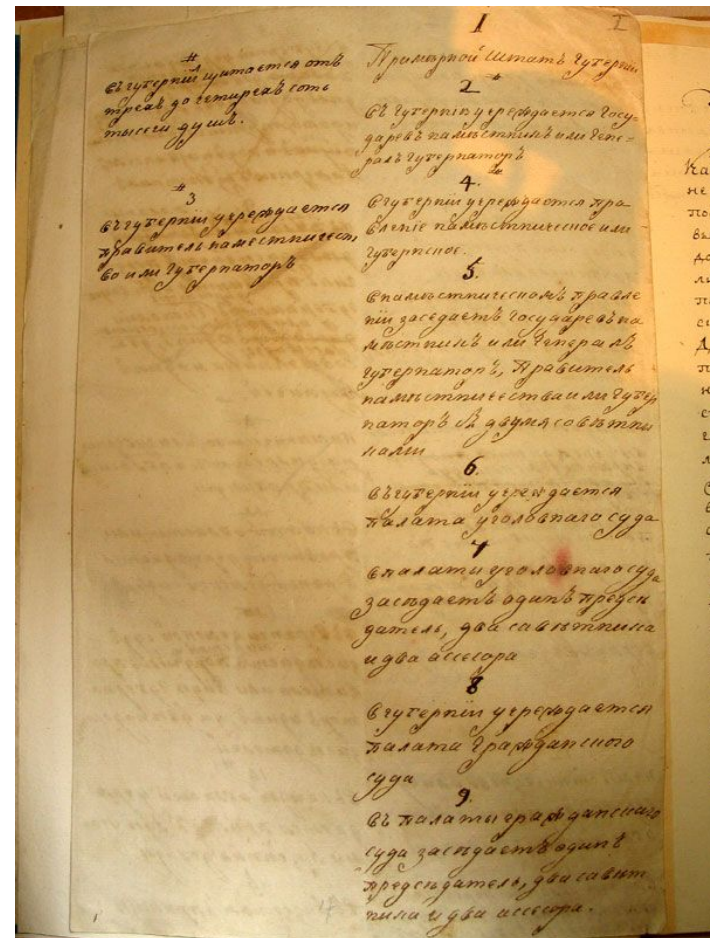 #
въ губерніи щитается отъ
трехъ до четирехъ сотъ
тысечи душъ.
#
3
въ губерніи учереждается
правитель наместничест,
во или Губернаторъ
1
I
Примѣрной Штатъ Губерніи
2
#
Въ Губерніи учереждается Госу-
даревъ намѣстникъ или Гене-
ралъ Губернаторъ
#
4.
Вгуберніи учереждаются пра-
вленіе намѣстническое или
Губернское.
5.
Внамѣстническомъ правле
ніи заседаетъ Государевъ на
мѣстникъ или Генералъ
Губернаторъ, Правитель
намѣстничества или Губер
наторъ съ двумя совѣтни
ками
6.
Въ губерніи учереждается
палата уголовнаго суда
7
Впалати уголовнаго суда
засѣдаетъ одинъ предсѣ
датель, два савѣтника
и два ассесора
8
Вгуберніи учереждается
палата Гражданского
суда
9.
Въ палаты гражданскаго
суда засѣдаетъ одинъ
предсѣдатель, два савѣт
ника и два ассесора.
1